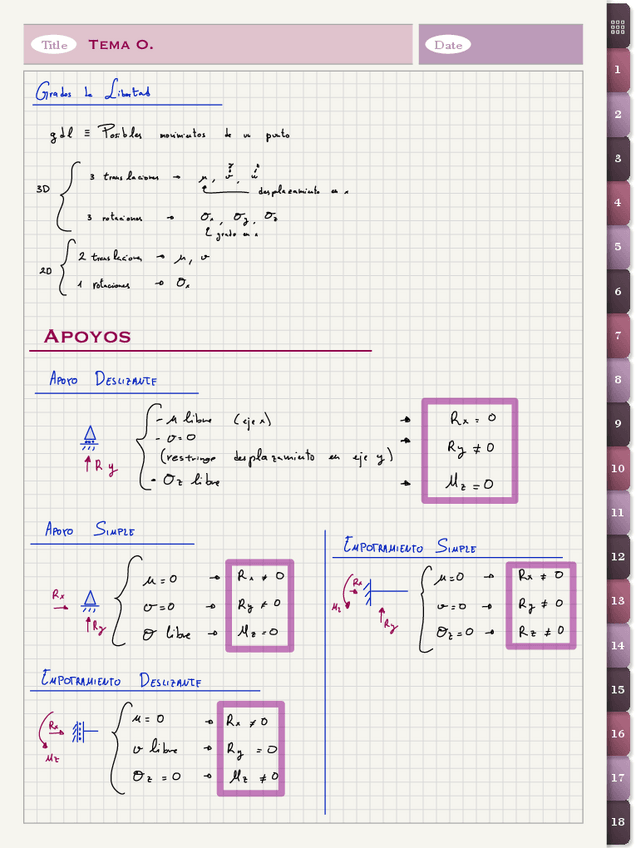 Title TEMA 0. Date
Grados de Libertad
gdl ≡ Posibles movimientos de un punto
3D
3 translaciones → u, v, w
y z
desplazamiento en x
3 rotaciones → θx, θy, θz
en x
2D
2 translaciones → u, v
1 rotaciones → θx
APOYOS
APOYO DESLIZANTE
Ry
- u libre (eje x) → Rx = 0
- v=0 → Ry ≠ 0
(restringe desplazamiento en eje y)
- θz libre → Mz = 0
APOYO SIMPLE
Rx
Ry
u=0 → Rx ≠ 0
v=0 → Ry ≠ 0
θ libre → Mz = 0
EMPOTRAMIENTO SIMPLE
Rx
Mz
Ry
u=0 → Rx ≠ 0
v=0 → Ry ≠ 0
θz=0 → Rz ≠ 0
EMPOTRAMIENTO DESLIZANTE
Rx
Mz
u=0 → Rx ≠ 0
v libre → Ry = 0
θz = 0 → Mz ≠ 0
1
2
3
4
5
6
7
8
9
10
11
12
13
14
15
16
17
18